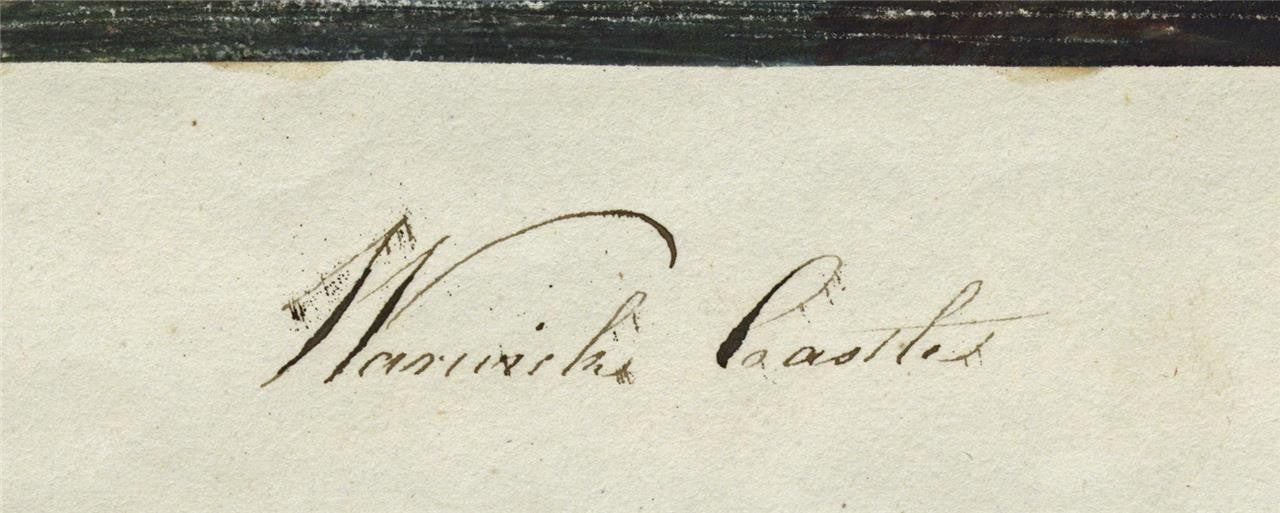 Warwick Castle